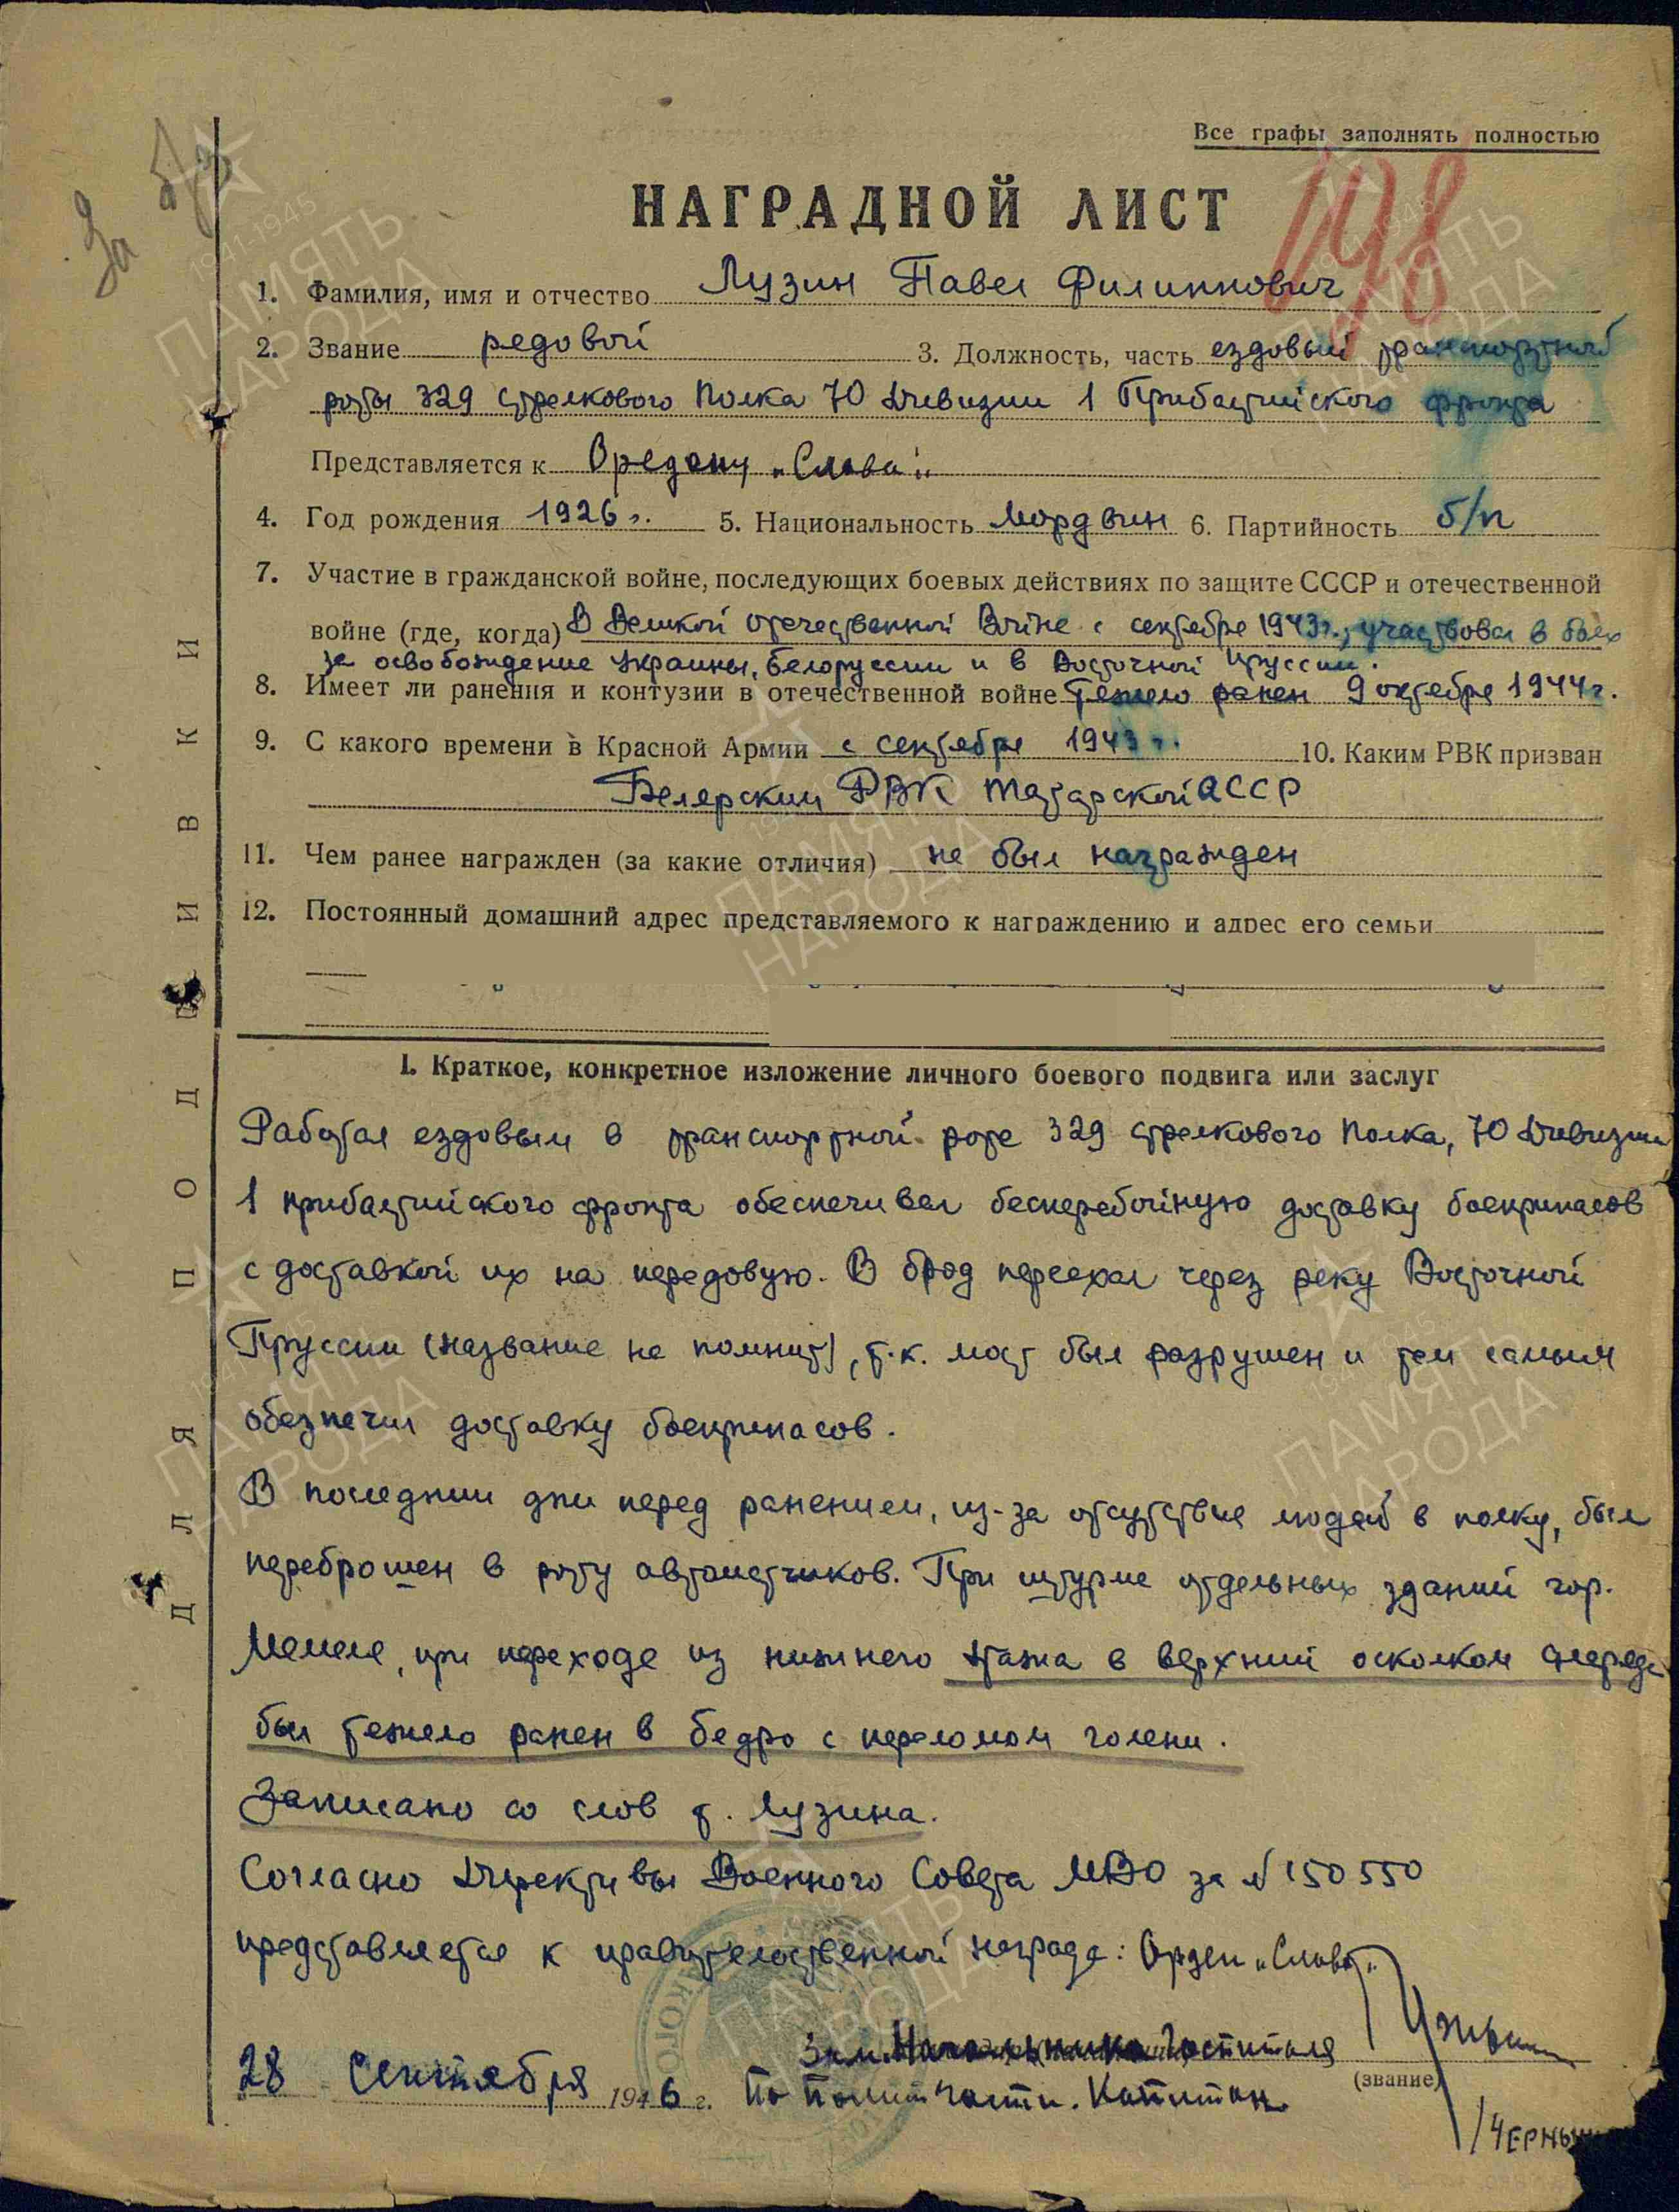 Все графы заполнять полностью
198
За
НАГРАДНОЙ ЛИСТ
1. Фамилия, имя и отчество Лузин Павел Филиппович
2. Звание редовой 3. Должность, часть ездовый транспортной
роты 329 стрелкового Полка 70 Дивизии 1 Прибалтийского фронта
Представляется к Оредену „Слава".
4. Год рождения 1926 г. 5. Национальность Мордвин 6. Партийность б/п
7. Участие в гражданской войне, последующих боевых действиях по защите СССР и отечественной
войне (где, когда) В Великой отечественной Войне с сентебре 1943 г., участвовал в боях
за освобождение Украины, Белоруссии и в Восточной Пруссии.
8. Имеет ли ранения и контузии в отечественной войне Тежело ранен 9 октебре 1944 г.
9. С какого времени в Красной Армии с сентебре 1943 г. 10. Каким РВК призван
Белерским РВК Татарской АССР
11. Чем ранее награжден (за какие отличия) не был награжден
12. Постоянный домашний адрес представляемого к награждению и адрес его семьи
I. Краткое, конкретное изложение личного боевого подвига или заслуг
Работая ездовым в транспортной роте 329 стрелкового Полка, 70 Дивизии
1 прибалтийского фронта обеспечивал бесперебойную доставку боеприпасов
с доставкой их на передовую. В брод переехал через реку Восточной
Пруссии (название не помнит), т.к. мост был разрушен и тем самым
обезпечил доставку боеприпасов.
В последнии дни перед ранением, из-за отсутствие людей в полку, был
переброшен в роту автоматчиков. При штурме отдельных зданий гор.
Мемеле, при переходе из нижнего этажа в верхний осколком снереда
был тежело ранен в бедро с переломом голени.
Записано со слов т. Лузина.
Согласно Директивы Военного Совета МВО за № 150550
представляется к правительственной награде: Орден „Слава".
Зам. Начальника Госпиталя
(звание)
28 Сентября 1946 г. По Полит Части. Капитан
/ЧЕРНЫ
ДЛЯ ПОДШИВКИ
1941-1945
ПАМЯТЬ
НАРОДА